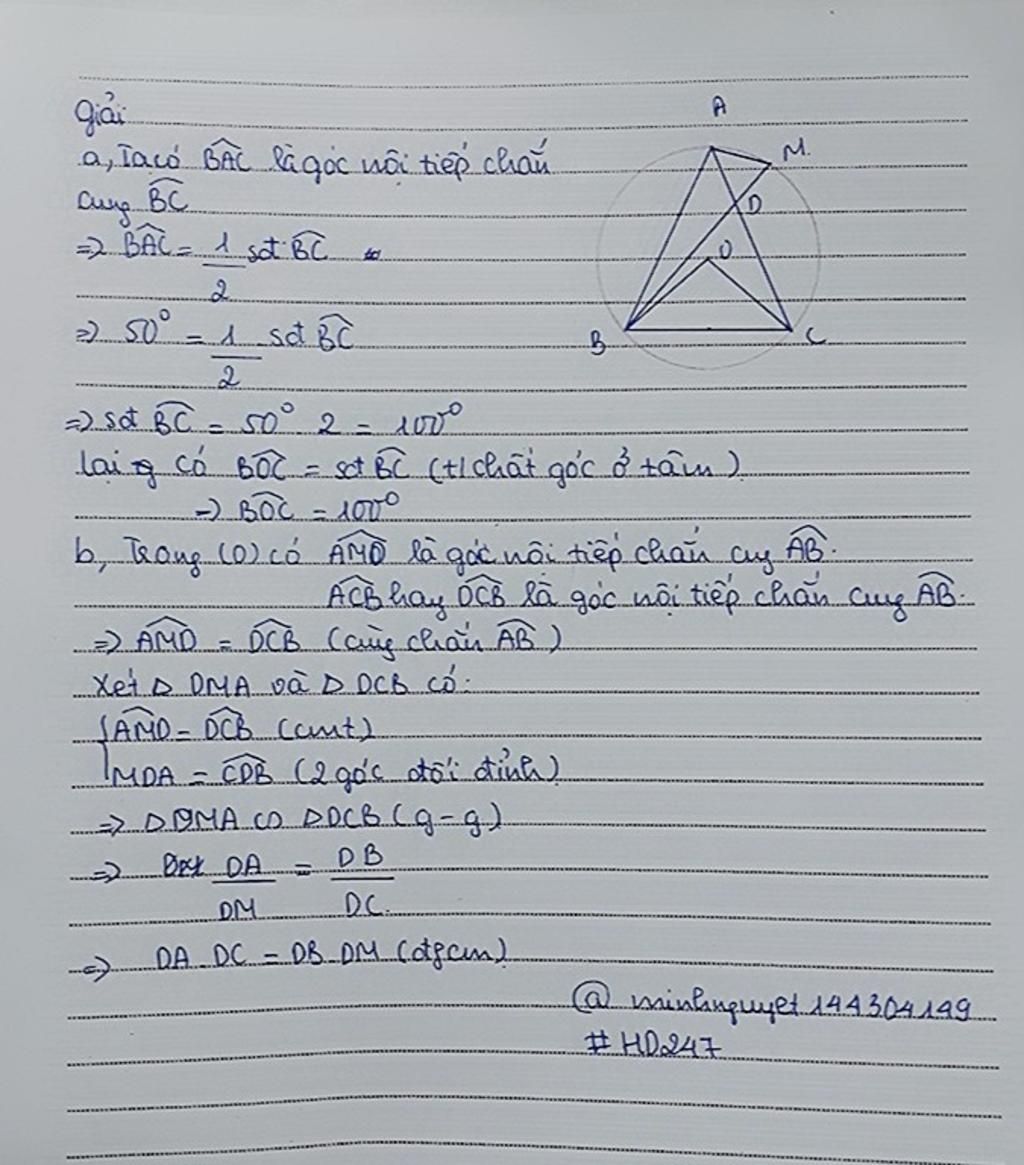 Giải
a, Ta có BAC là góc nội tiếp chắn
cung BC
=> BAC = 1/2 sđ BC
=> 50° = 1/2 sđ BC
=> sđ BC = 50° 2 = 100°
lại có BOC = sđ BC (t/chất góc ở tâm)
-> BOC = 100°
b, Trong (O) có AMD là góc nội tiếp chắn cug AB.
ACB hay DCB là góc nội tiếp chắn cug AB.
=> AMD = DCB (cùg chắn AB)
Xét Δ DMA và Δ DCB có:
AMD = DCB (cmt)
MDA = CDB (2 góc đối đỉnh)
=> Δ DMA ∽ ΔDCB (g-g)
=> DA/DM = DB/DC
=> DA DC = DB DM (đpcm)
@ minhnguyet144304149
# HD247
A
M
D
O
B
C